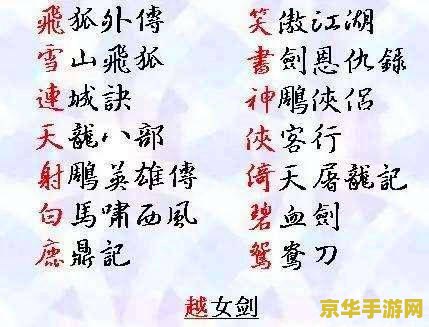 飛狐外傳
雪山飛狐
連城訣
天龍八部
射鵰英雄傳
白馬嘯西風
鹿鼎記
笑傲江湖
書劍恩仇錄
神鵰俠侶
俠客行
倚天屠龍記
碧血劍
鴛鴦刀
越女剑
京华手游网